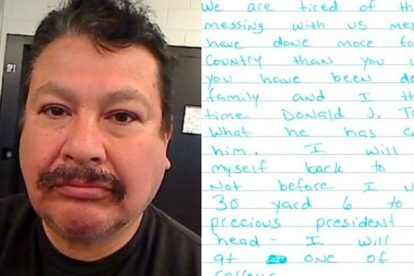 We are tired of th
messing with us me
have done more fo
country than you
you have been d
family and I th
time Donald J. T
what he has c
him. I will
myself back to
Not before I
30 yard 6 to
precious president
head - I will
at one of